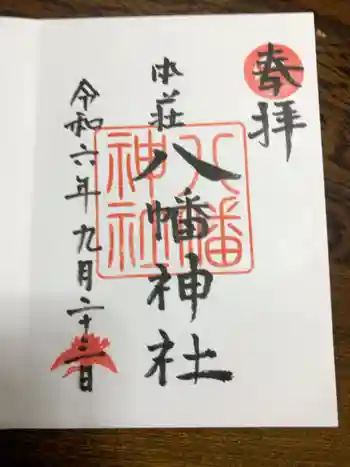 奉拝
中荘
八幡神社
八幡
神社
令和六年九月二十二日